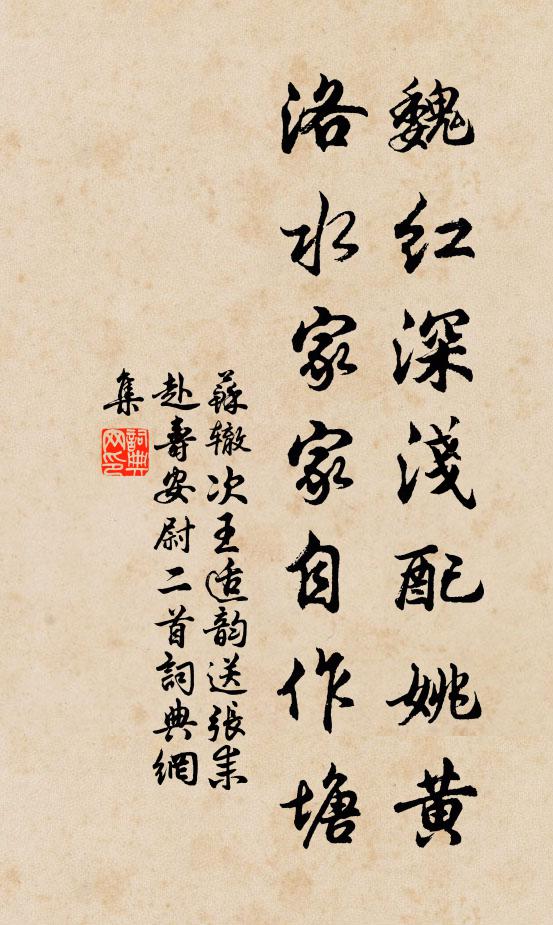 魏红深淺配姚黄
洛水家家自作塘
蘇辙次王适韵送張耒
赴壽安尉二首詞典網
集
詞典
网印